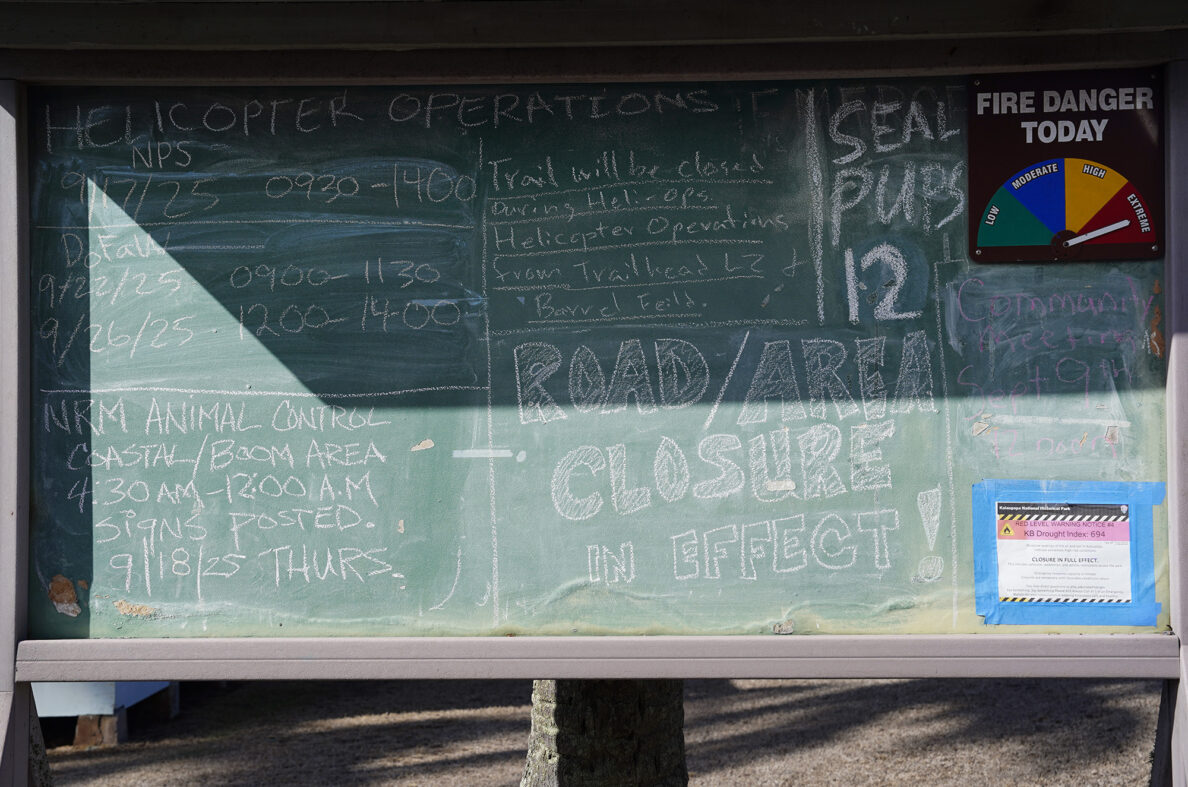 HELICOPTER OPERATIONS
NPS
9/17/25 0930-1400
DoFaW
9/22/25 0900-1130
9/26/25 1200-1400
Trail will be closed
During Heli-ops.
Helicopter Operations
from Trailhead LZ &
Barrel Feild.
SEAL
PUPS
12
FIRE DANGER
TODAY
LOW
MODERATE
HIGH
EXTREME
Community
Meeting
Sept 9th
NRM ANIMAL CONTROL
COASTAL/BOOM AREA
4:30 AM-12:00 A.M
SIGNS POSTED.
9/18/25 THUR.
ROAD/AREA
CLOSURE
IN EFFECT!
Kalaupapa National Historical Park
RED LEVEL WARNING NOTICE #4
KB Drought Index: 694
CLOSURE IN FULL EFFECT.